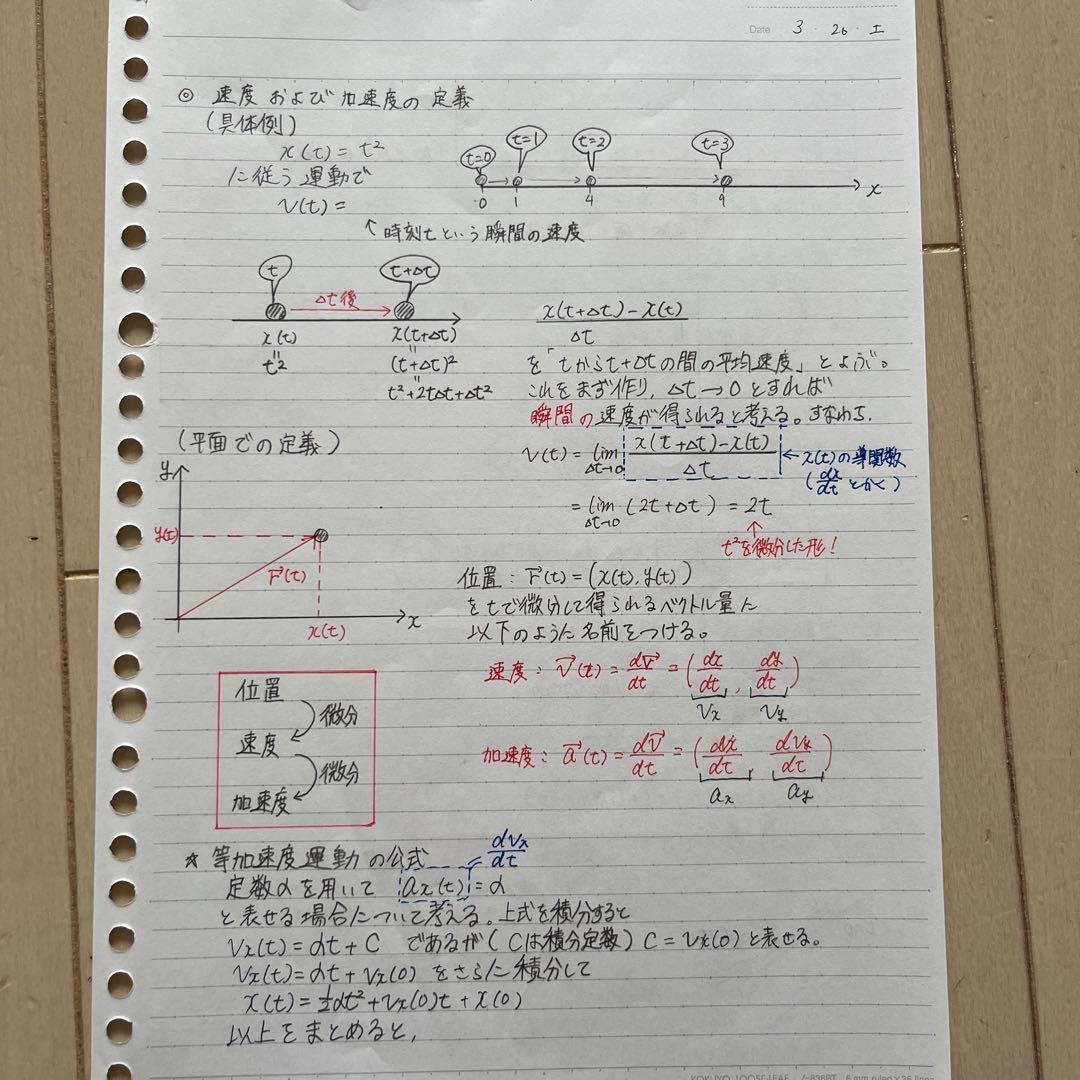 Date 3・26・土
◎ 速度 および 加速度の 定義
(具体例)
x(t) = t²
に従う 運動で
v(t) =
↑ 時刻tという 瞬間の速度
t=0 t=1 t=2 t=3
0 1 4 9 x
t t+Δt
Δt後
x(t) x(t+Δt)
t² (t+Δt)²
t²+2tΔt+Δt²
x(t+Δt)-x(t)
Δt
を「tからt+Δtの間の平均速度」とよぶ。
これをまず作り, Δt→0 とすれば
瞬間の速度が得られると考える。すなわち,
v(t) = lim Δt→0 x(t+Δt)-x(t) / Δt ← x(t)の導関数
(dx/dt とかく)
= lim Δt→0 (2t+Δt) = 2t
↑
t²を微分した形!
(平面での定義)
y
y(t)
r⃗(t)
x(t) x
位置: r⃗(t) = (x(t), y(t))
をtで微分して得られるベクトル量に
以下のように名前をつける。
速度: v⃗(t) = dr⃗/dt = (dx/dt, dy/dt)
vx vy
加速度: a⃗(t) = dv⃗/dt = (dvx/dt, dvy/dt)
ax ay
位置
微分
速度
微分
加速度
☆ 等加速度運動の公式
dvx/dt
定数αを用いて ax(t) = α
と表せる場合について考える。上式を積分すると
vx(t) = αt + C であるが (Cは積分定数) C = vx(0) と表せる。
vx(t) = αt + vx(0) をさらに積分して
x(t) = ½αt² + vx(0)t + x(0)
以上をまとめると,